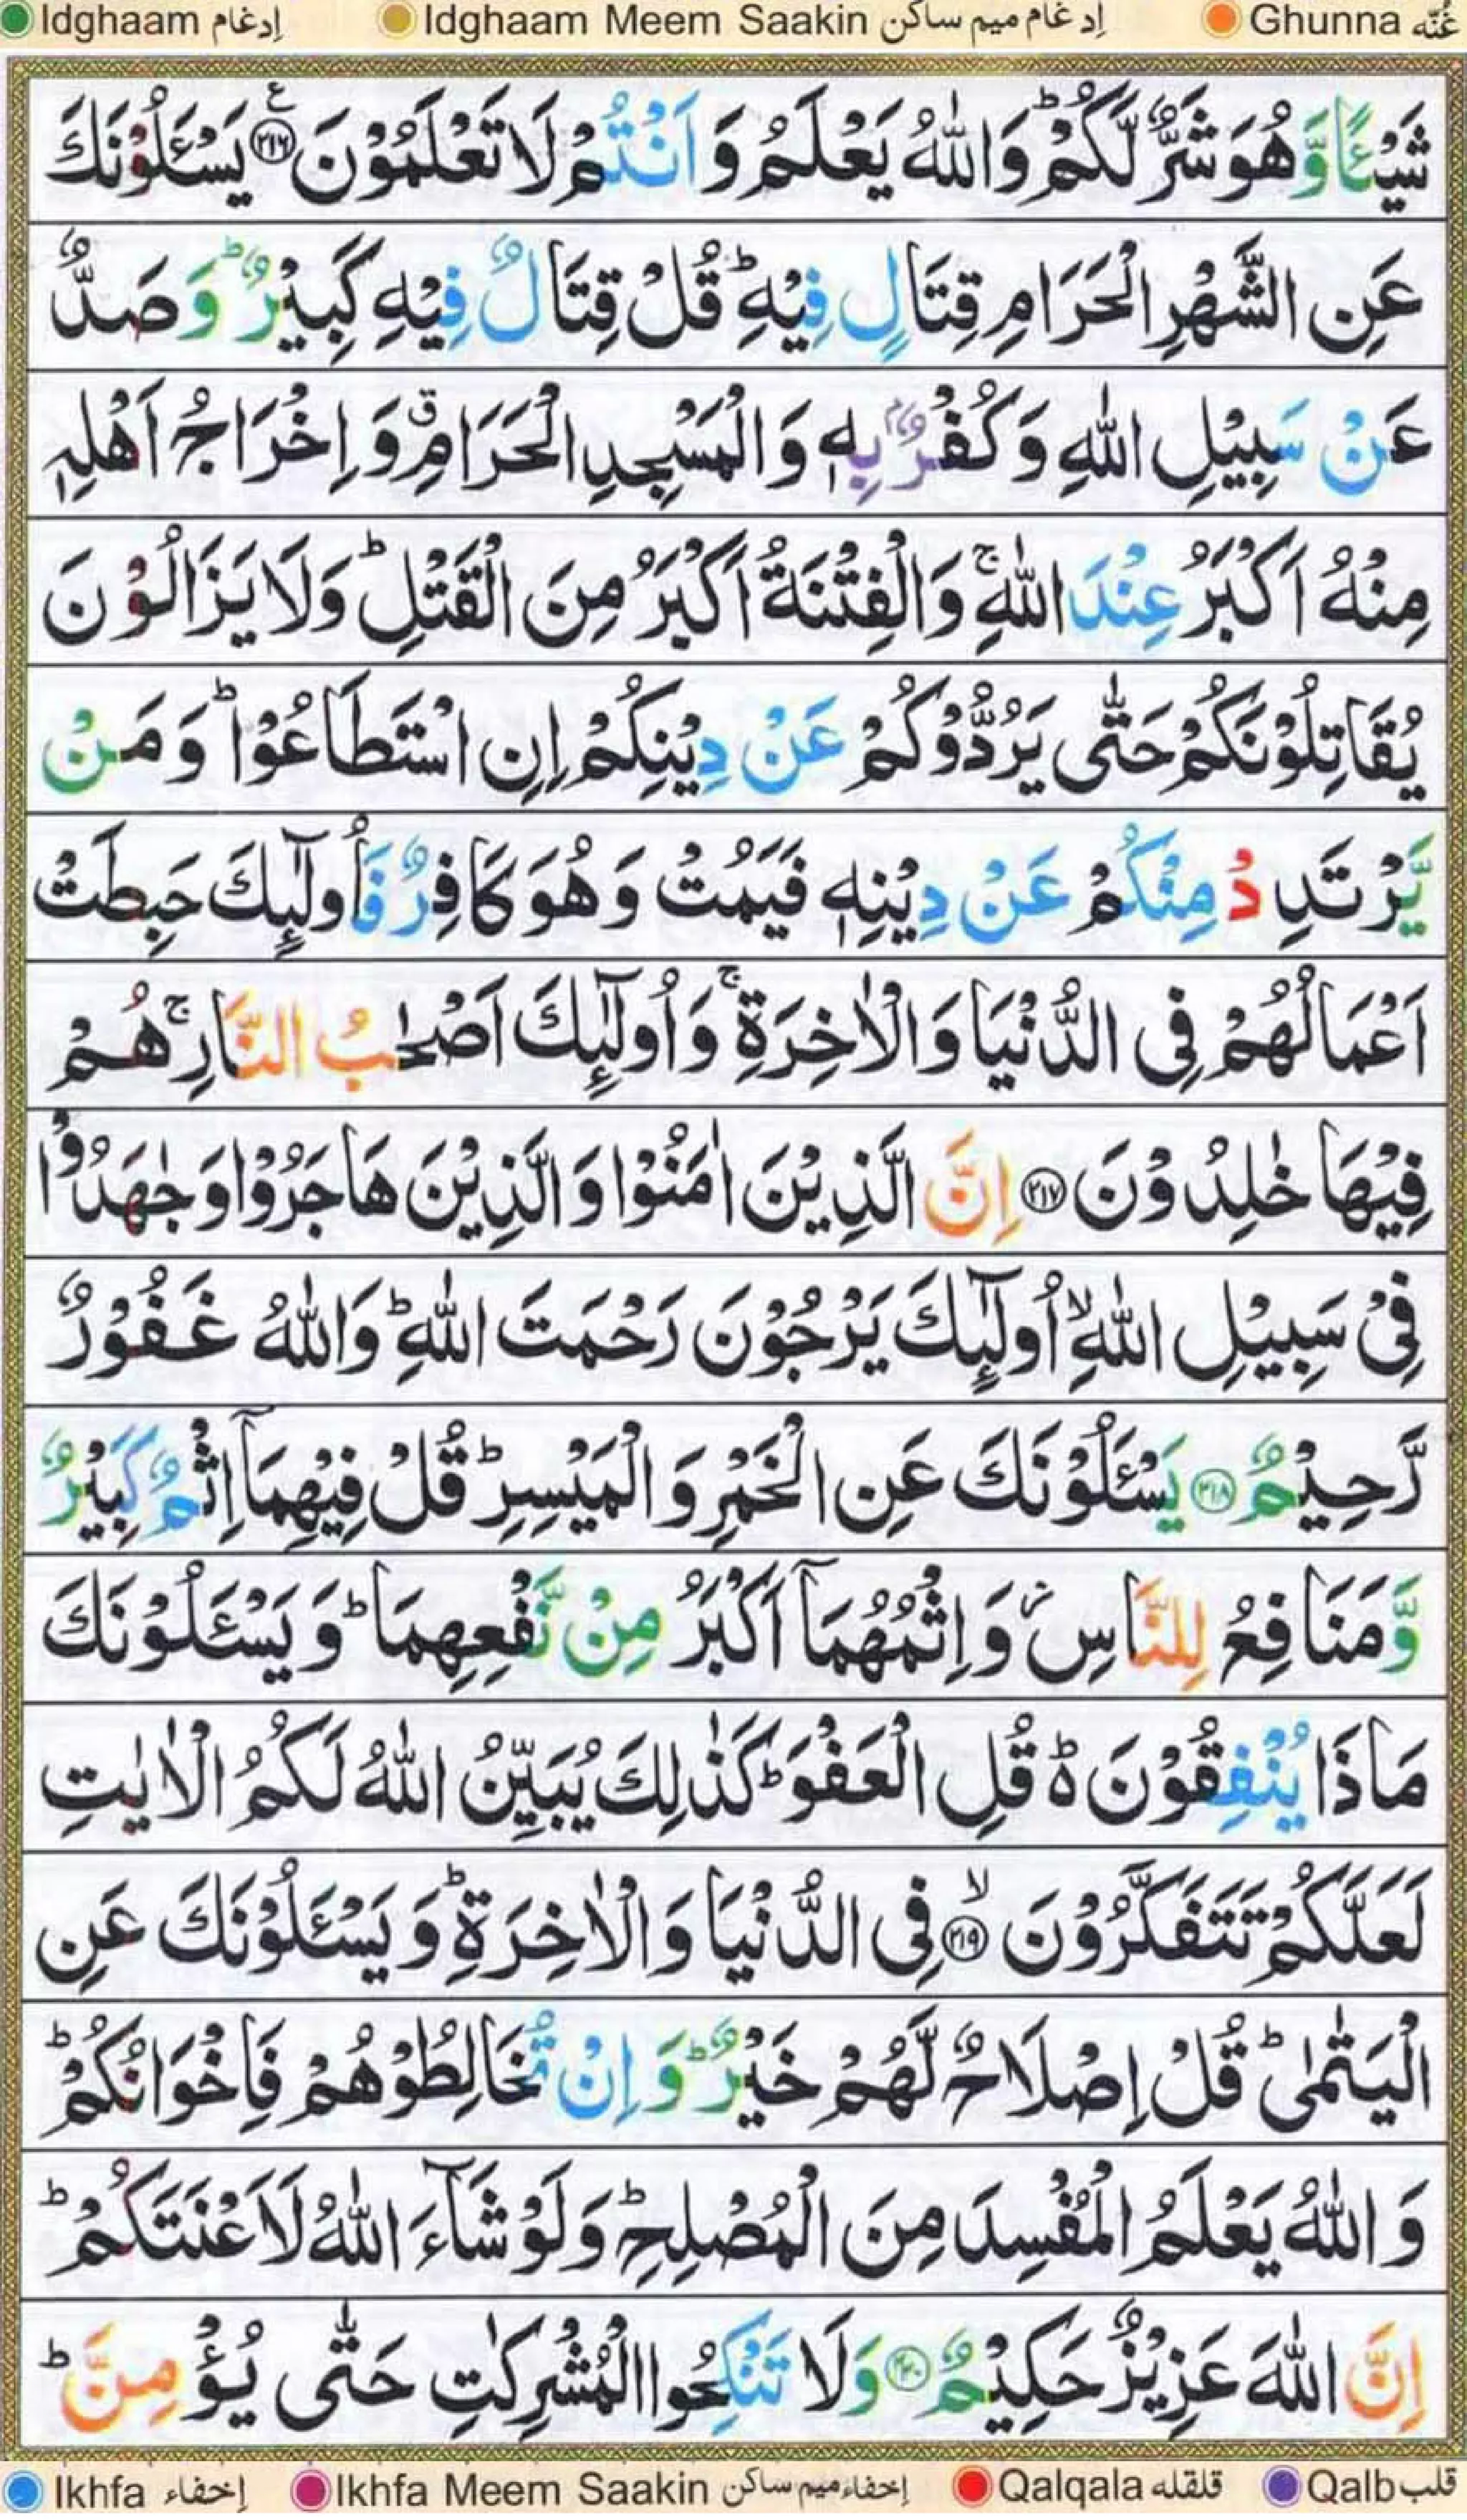 Idghaam إدغام Idghaam Meem Saakin إدغام ميم ساكن Ghunna غُنّه
شَيْـًٔا وَّهُوَ شَرٌّ لَّكُمْ ؕ وَاللّٰهُ يَعْلَمُ وَاَنْتُمْ لَا تَعْلَمُوْنَ ﴿۲۱۶﴾ ع يَسْـَٔلُوْنَكَ
عَنِ الشَّهْرِ الْحَرَامِ قِتَالٍ فِيْهِ ؕ قُلْ قِتَالٌ فِيْهِ كَبِيْرٌ ؕ وَصَدٌّ
عَنْ سَبِيْلِ اللّٰهِ وَكُفْرٌۢ بِهٖ وَالْمَسْجِدِ الْحَرَامِ ۗ وَاِخْرَاجُ اَهْلِهٖ
مِنْهُ اَكْبَرُ عِنْدَ اللّٰهِ ۚ وَالْفِتْنَةُ اَكْبَرُ مِنَ الْقَتْلِ ؕ وَلَا يَزَالُوْنَ
يُقَاتِلُوْنَكُمْ حَتّٰى يَرُدُّوْكُمْ عَنْ دِيْنِكُمْ اِنِ اسْتَطَاعُوْا ؕ وَمَنْ
يَّرْتَدِدْ مِنْكُمْ عَنْ دِيْنِهٖ فَيَمُتْ وَهُوَ كَافِرٌ فَاُولٰٓئِكَ حَبِطَتْ
اَعْمَالُهُمْ فِى الدُّنْيَا وَالْاٰخِرَةِ ۚ وَاُولٰٓئِكَ اَصْحٰبُ النَّارِ ۚ هُمْ
فِيْهَا خٰلِدُوْنَ ﴿۲۱۷﴾ اِنَّ الَّذِيْنَ اٰمَنُوْا وَالَّذِيْنَ هَاجَرُوْا وَجٰهَدُوْا
فِىْ سَبِيْلِ اللّٰهِ ۙ اُولٰٓئِكَ يَرْجُوْنَ رَحْمَتَ اللّٰهِ ؕ وَاللّٰهُ غَفُوْرٌ
رَّحِيْمٌ ﴿۲۱۸﴾ يَسْـَٔلُوْنَكَ عَنِ الْخَمْرِ وَالْمَيْسِرِ ؕ قُلْ فِيْهِمَاۤ اِثْمٌ كَبِيْرٌ
وَّمَنَافِعُ لِلنَّاسِ ۡ وَاِثْمُهُمَاۤ اَكْبَرُ مِنْ نَّفْعِهِمَا ؕ وَيَسْـَٔلُوْنَكَ
مَاذَا يُنْفِقُوْنَ ۬ؕ قُلِ الْعَفْوَ ؕ كَذٰلِكَ يُبَيِّنُ اللّٰهُ لَكُمُ الْاٰيٰتِ
لَعَلَّكُمْ تَتَفَكَّرُوْنَ ۙ ﴿۲۱۹﴾ فِى الدُّنْيَا وَالْاٰخِرَةِ ؕ وَيَسْـَٔلُوْنَكَ عَنِ
الْيَتٰمٰى ؕ قُلْ اِصْلَاحٌ لَّهُمْ خَيْرٌ ؕ وَاِنْ تُخَالِطُوْهُمْ فَاِخْوَانُكُمْ ؕ
وَاللّٰهُ يَعْلَمُ الْمُفْسِدَ مِنَ الْمُصْلِحِ ؕ وَلَوْ شَآءَ اللّٰهُ لَاَعْنَتَكُمْ ؕ
اِنَّ اللّٰهَ عَزِيْزٌ حَكِيْمٌ ﴿۲۲۰﴾ وَلَا تَنْكِحُوا الْمُشْرِكٰتِ حَتّٰى يُؤْمِنَّ ؕ
Ikhfa إخفاء Ikhfa Meem Saakin إخفاء ميم ساكن Qalqala قلقله Qalb قلب